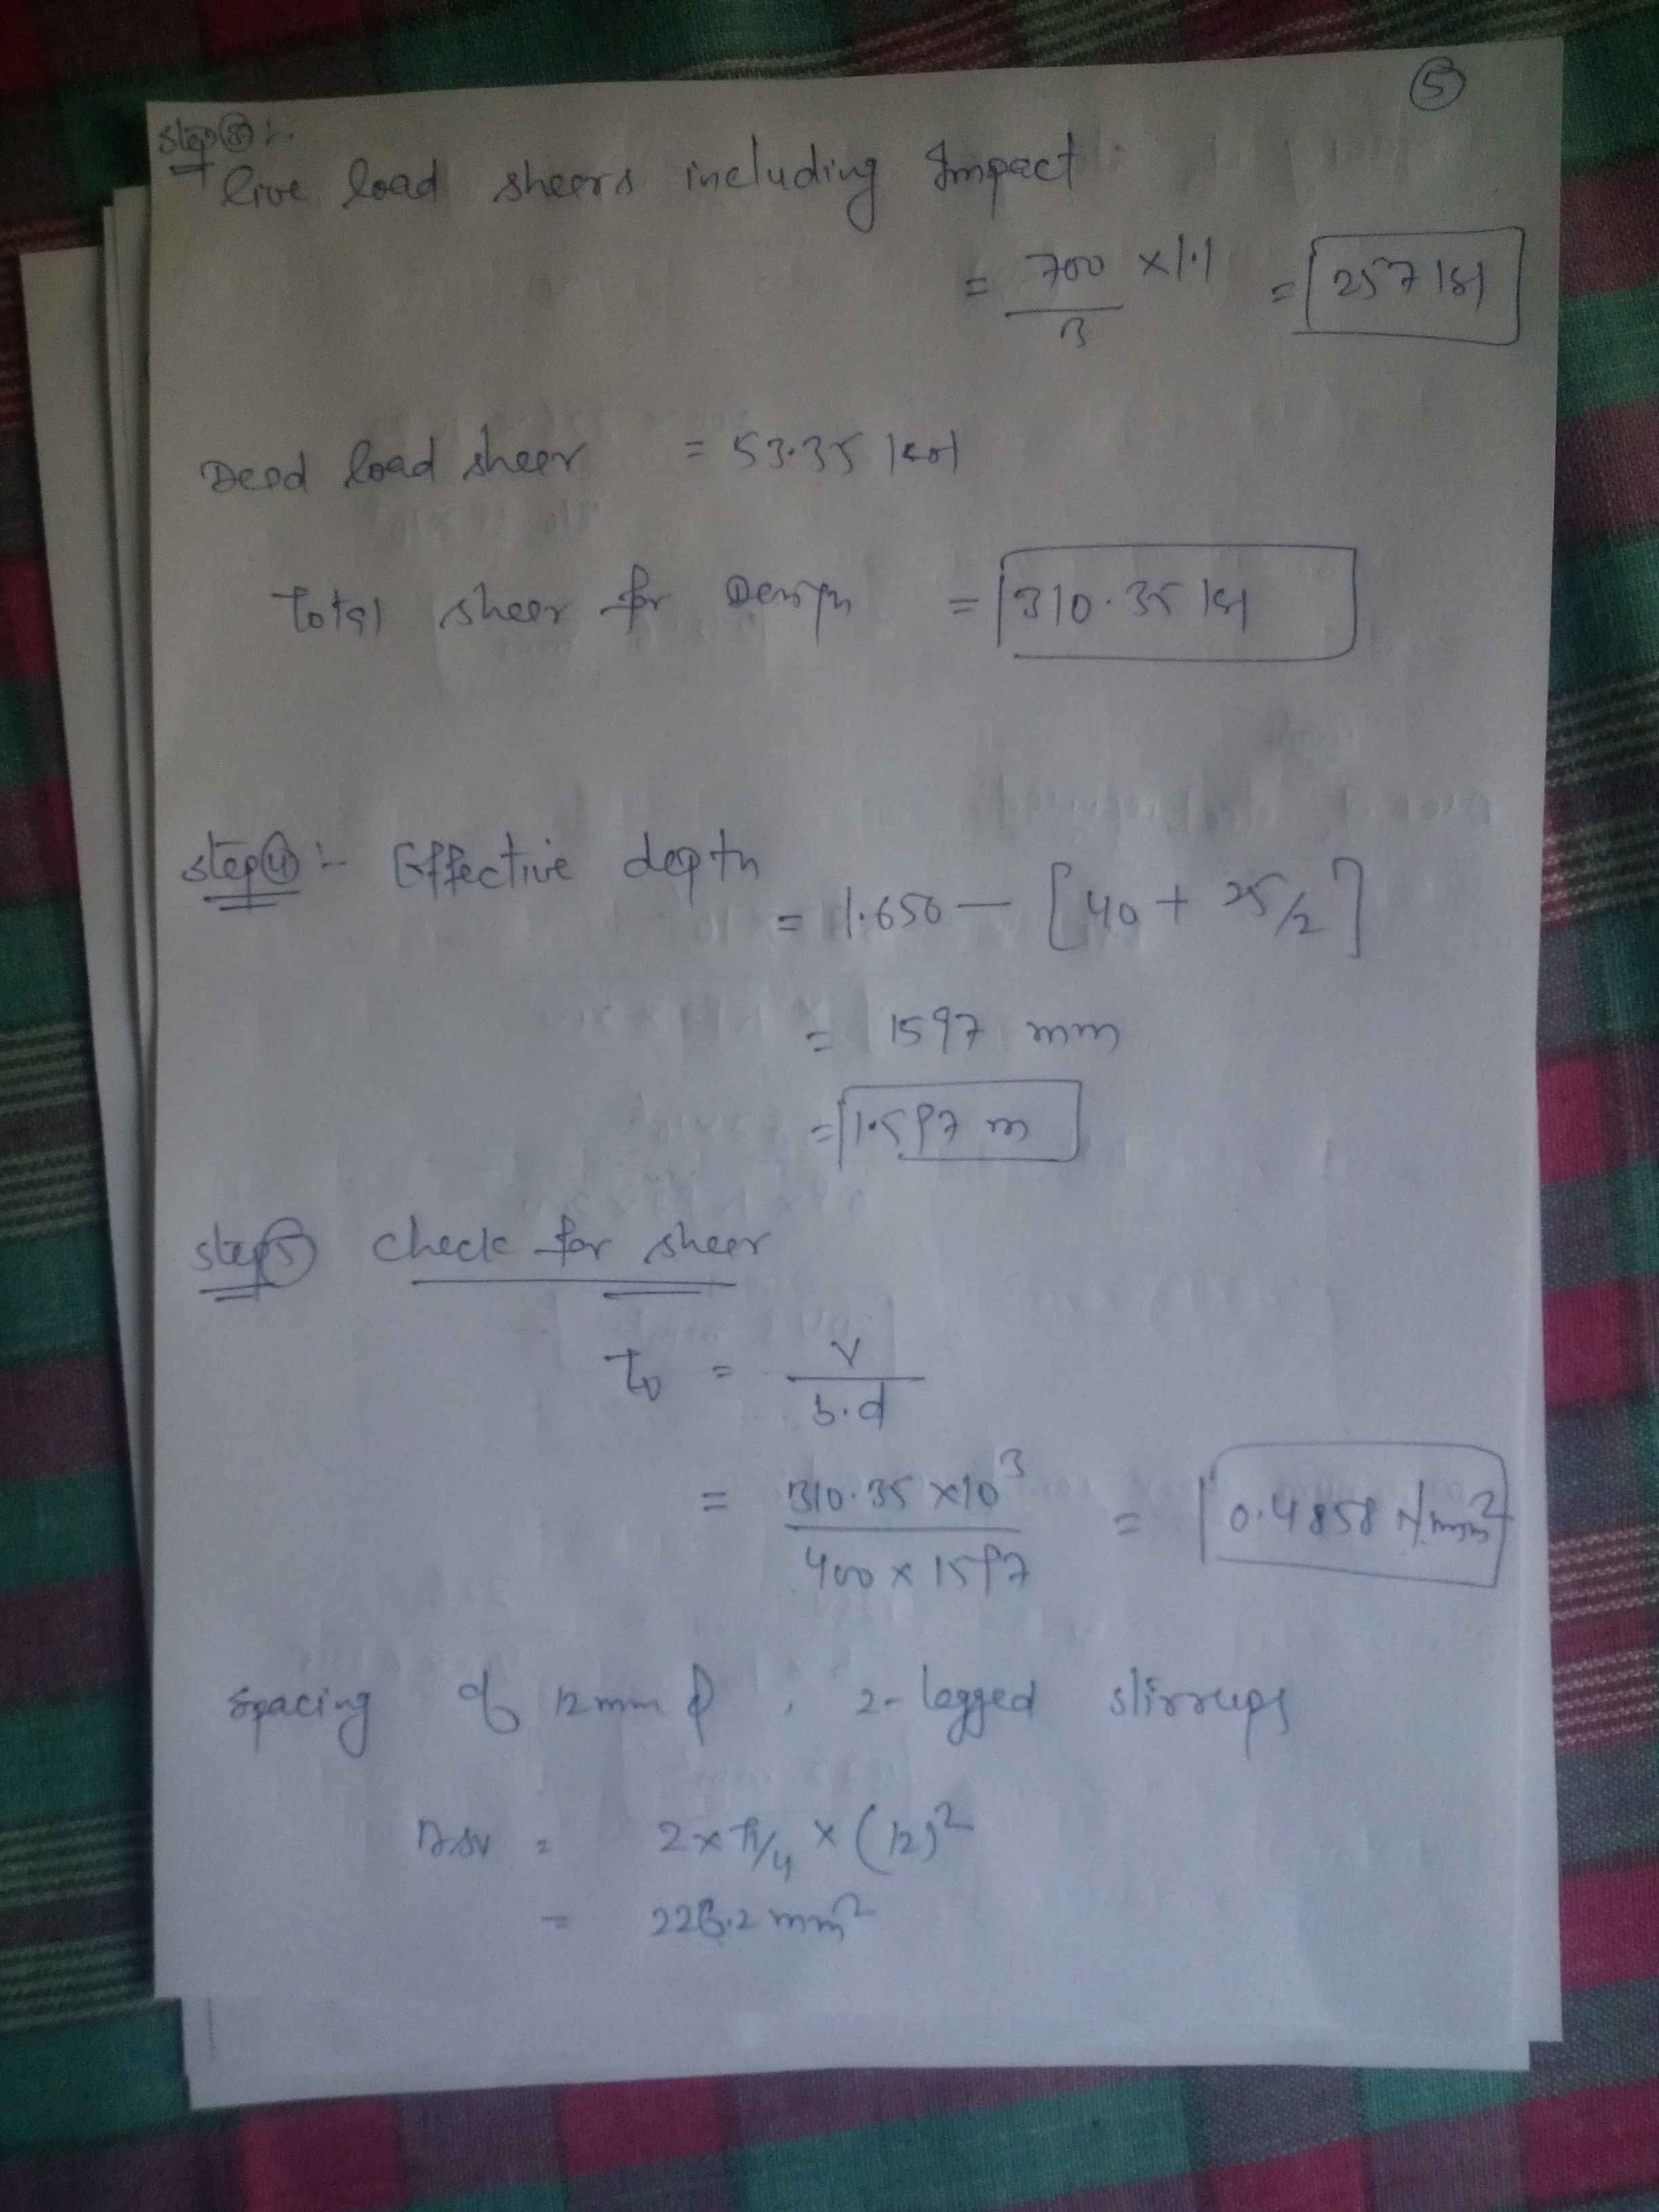 5
Step 3 :-
live load shears including Impact
= 700/3 × 1.1 = 257 kN
Dead load shear = 53.35 kN
Total shear for Design = 310.35 kN
Step 4 :- Effective depth
= 1.650 — [40 + 25/2]
= 1597 mm
= 1.597 m
Step 5 check for shear
τv = V/b.d
= 310.35 ×10³/400 × 1597 = 0.4858 N/mm²
Spacing of 12mm ϕ , 2-legged stirrups
Asv = 2 × π/4 × (12)²
= 226.2 mm²